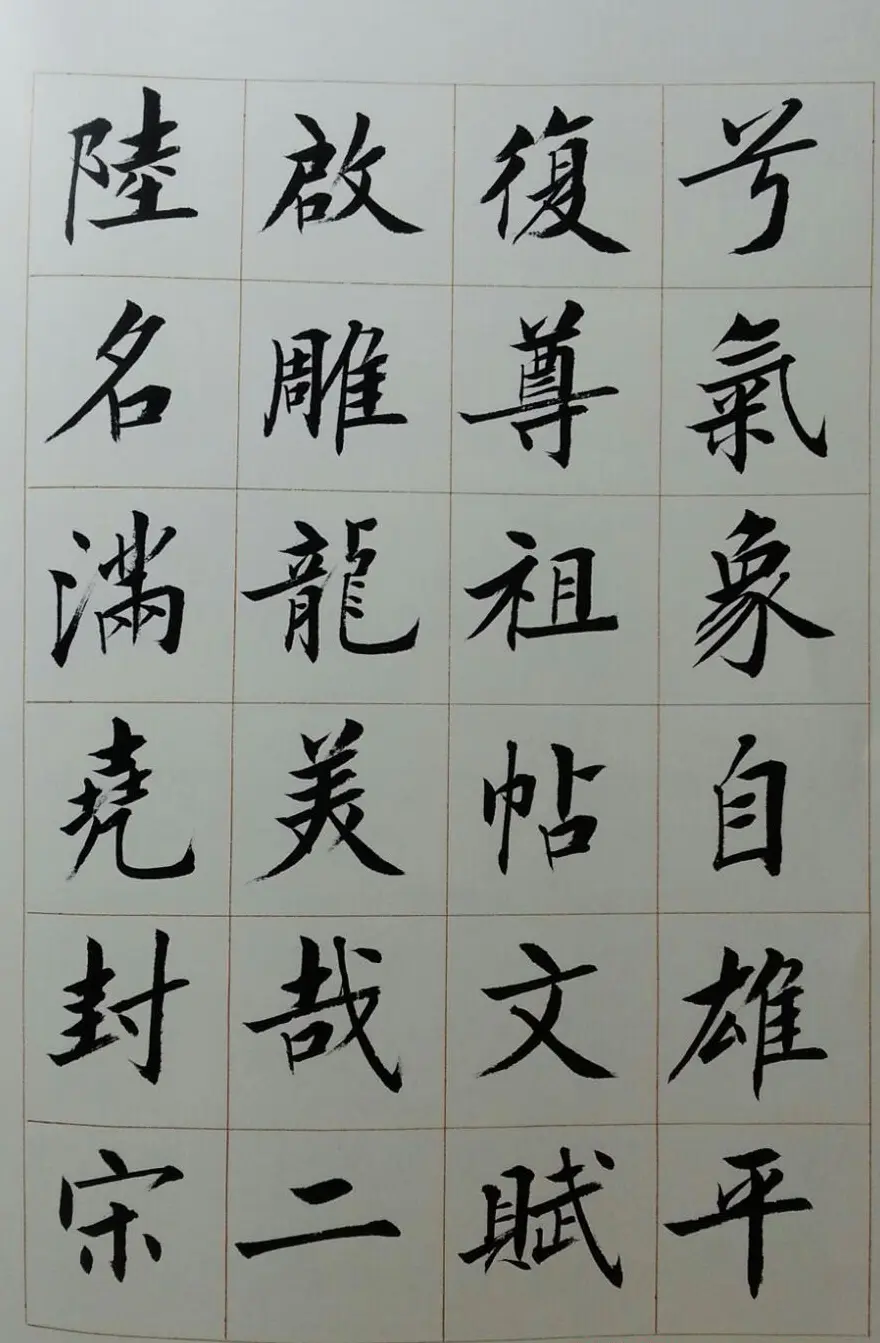 兮氣象自雄平
復尊祖帖文賦
啟雕龍美哉二
陸名滿堯封宋